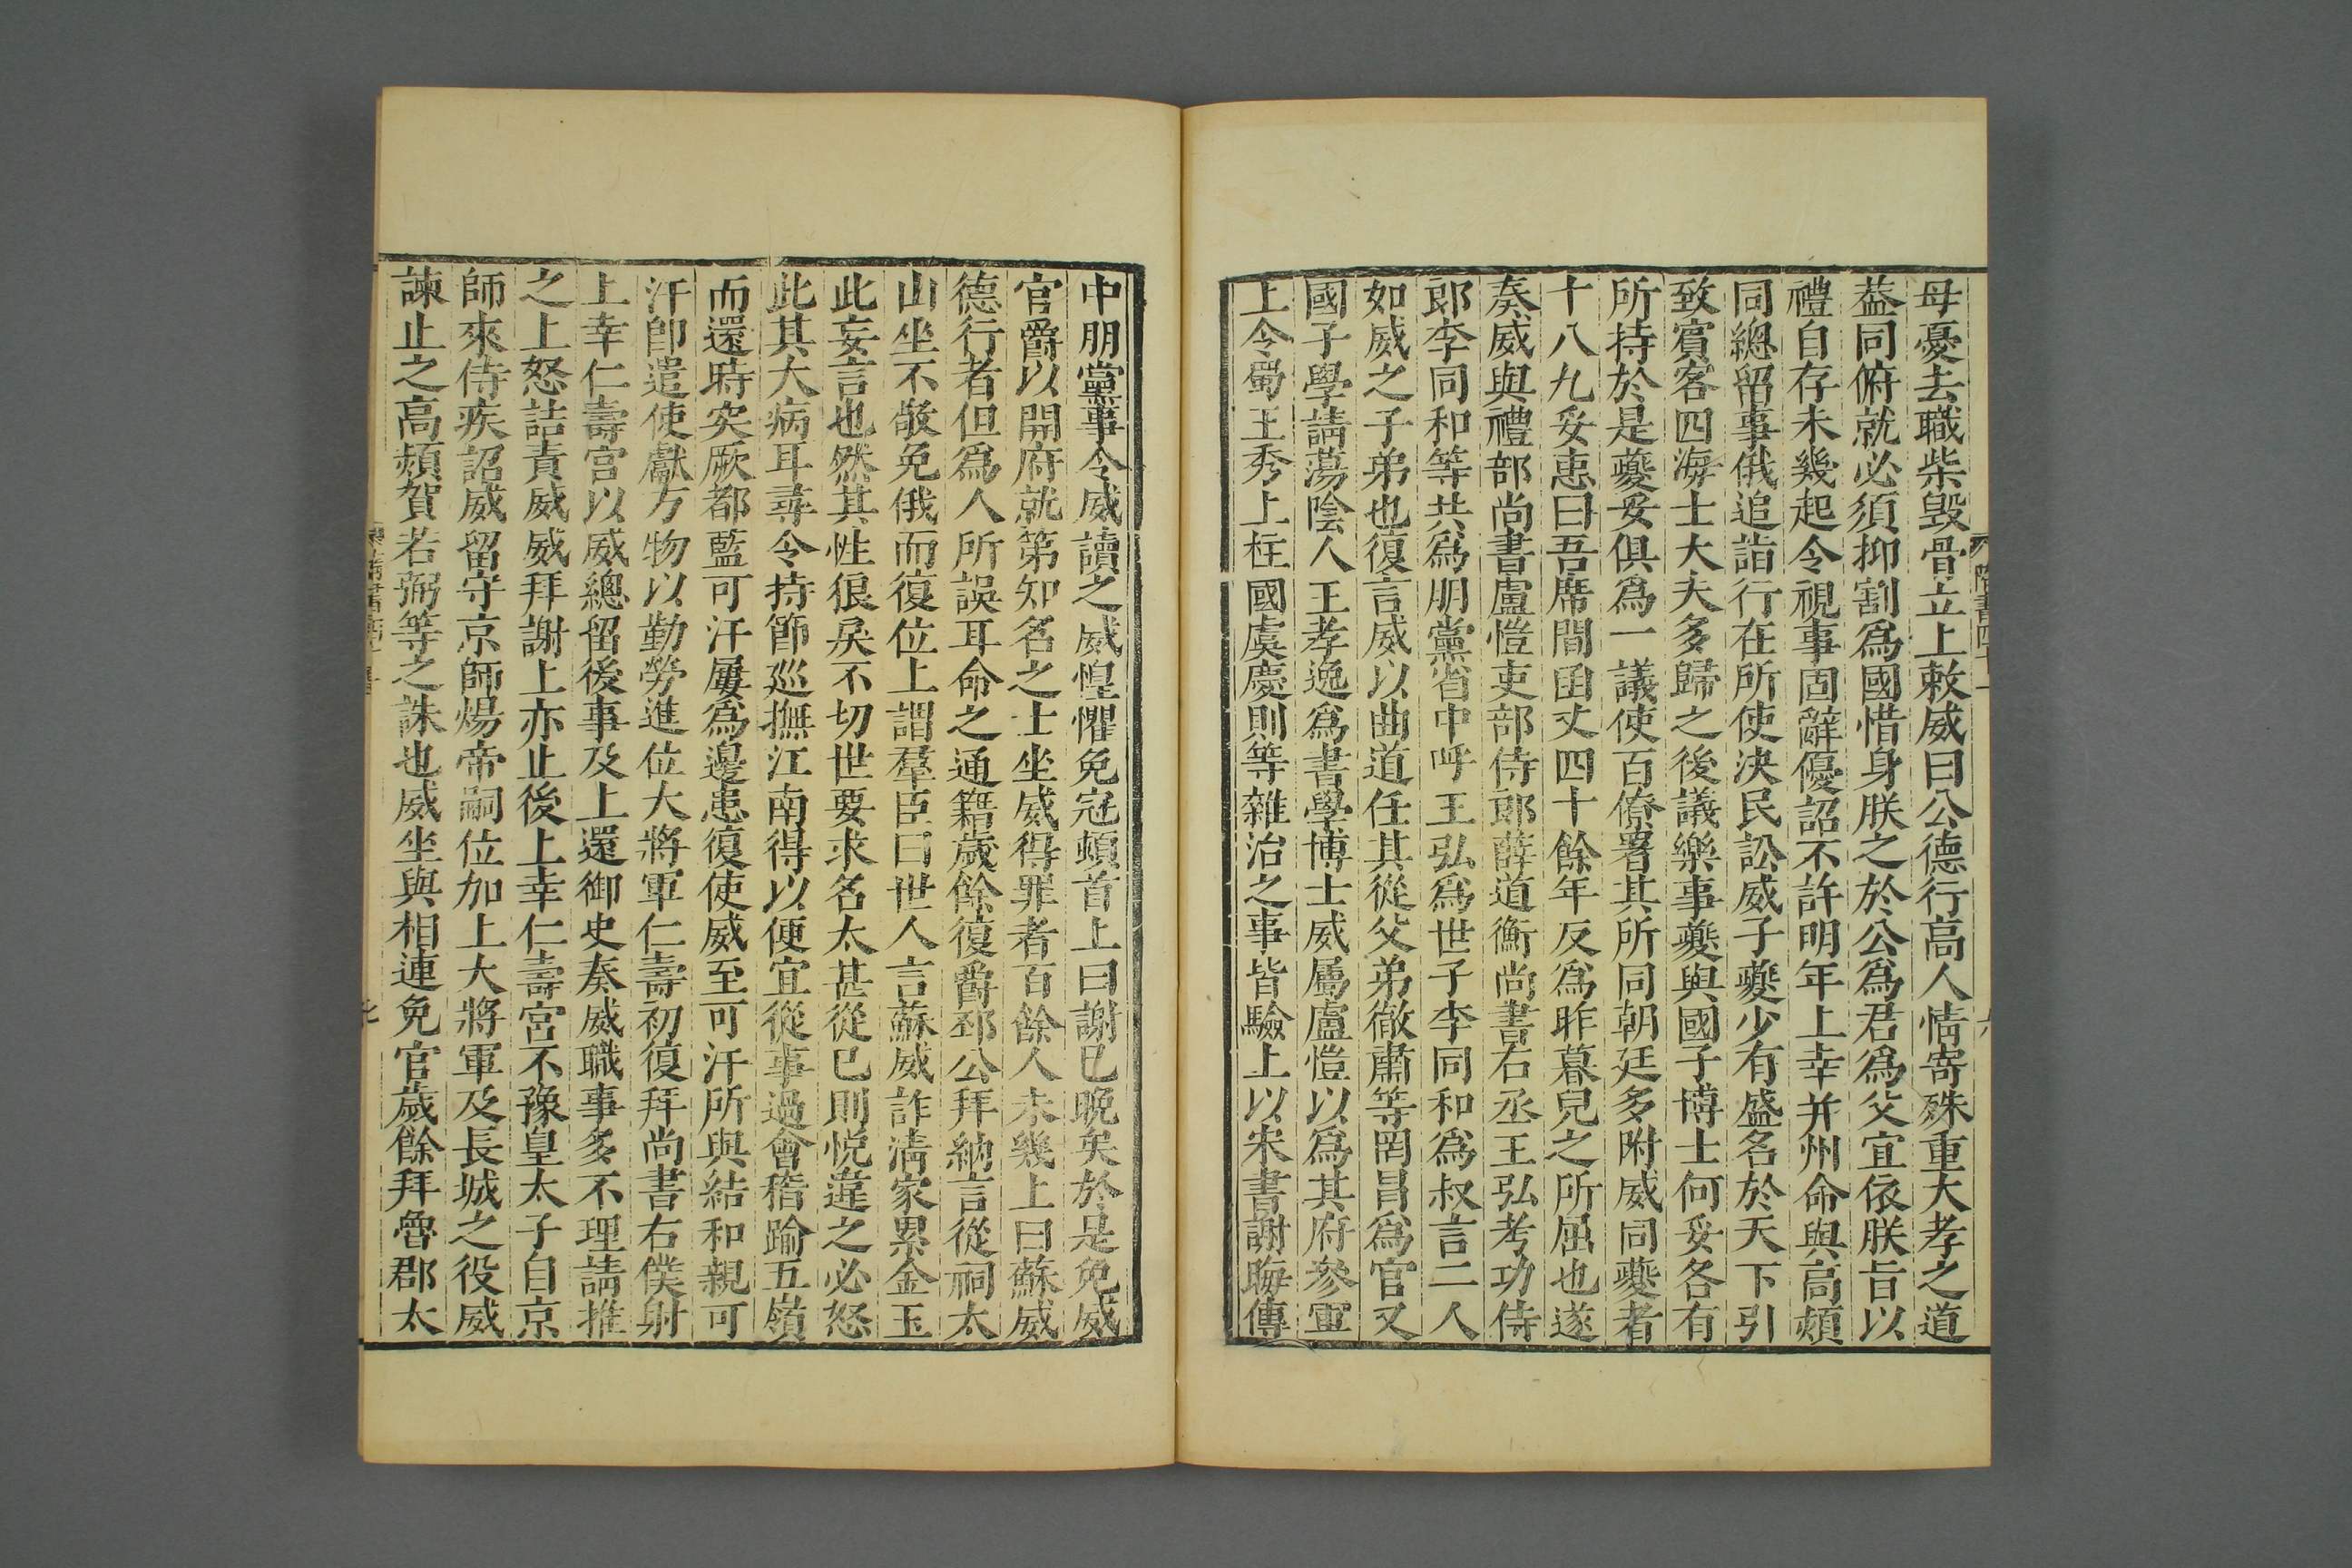 母憂去職柴毀骨立上敕威曰公德行高人情寄殊重大孝之道
葢同俯就必須抑割爲國惜身朕之於公爲君爲父宜依朕旨以
禮自存未幾起令視事固辭優詔不許明年上幸并州命與高熲
同總留事俄追詣行在所使決民訟威子夔少有盛名於天下引
致賓客四海士大夫多歸之後議樂事夔與國子博士何妥各有
所持於是夔妥俱爲一議使百僚署其所同朝廷多附威同夔者
十八九妥恚曰吾席間函丈四十餘年反爲昨暮兒之所屈也遂
奏威與禮部尚書盧愷吏部侍郎薛道衡尚書右丞王弘考功侍
郎李同和等共爲朋黨省中呼王弘爲世子李同和爲叔言二人
如威之子弟也復言威以曲道任其從父弟徹肅等罔冒爲官又
國子學請蕩陰人王孝逸爲書學博士威屬盧愷以爲其府參軍
上令蜀王秀上柱國虞慶則等雜治之事皆驗上以宋書謝晦傳
中朋黨事令威讀之威惶懼免冠頓首上曰謝已晚矣於是免威
官爵以開府就第知名之士坐威得罪者百餘人未幾上曰蘇威
德行者但爲人所誤耳命之通籍歲餘復爵邳公拜納言從祠太
山坐不敬免俄而復位上謂羣臣曰世人言蘇威詐淸家累金玉
此妄言也然其性狠戾不切世要求名太甚從己則悅違之必怒
此其大病耳尋令持節巡撫江南得以便宜從事過會稽踰五嶺
而還時突厥都藍可汗屢爲邊患復使威至可汗所與結和親可
汗卽遣使獻方物以勤勞進位大將軍仁壽初復拜尚書右僕射
上幸仁壽宮以威總留後事及上還御史奏威職事多不理請推
之上怒詰責威威拜謝上亦止後上幸仁壽宮不豫皇太子自京
師來侍疾詔威留守京師煬帝嗣位加上大將軍及長城之役威
諫止之高熲賀若弼等之誅也威坐與相連免官歲餘拜魯郡太